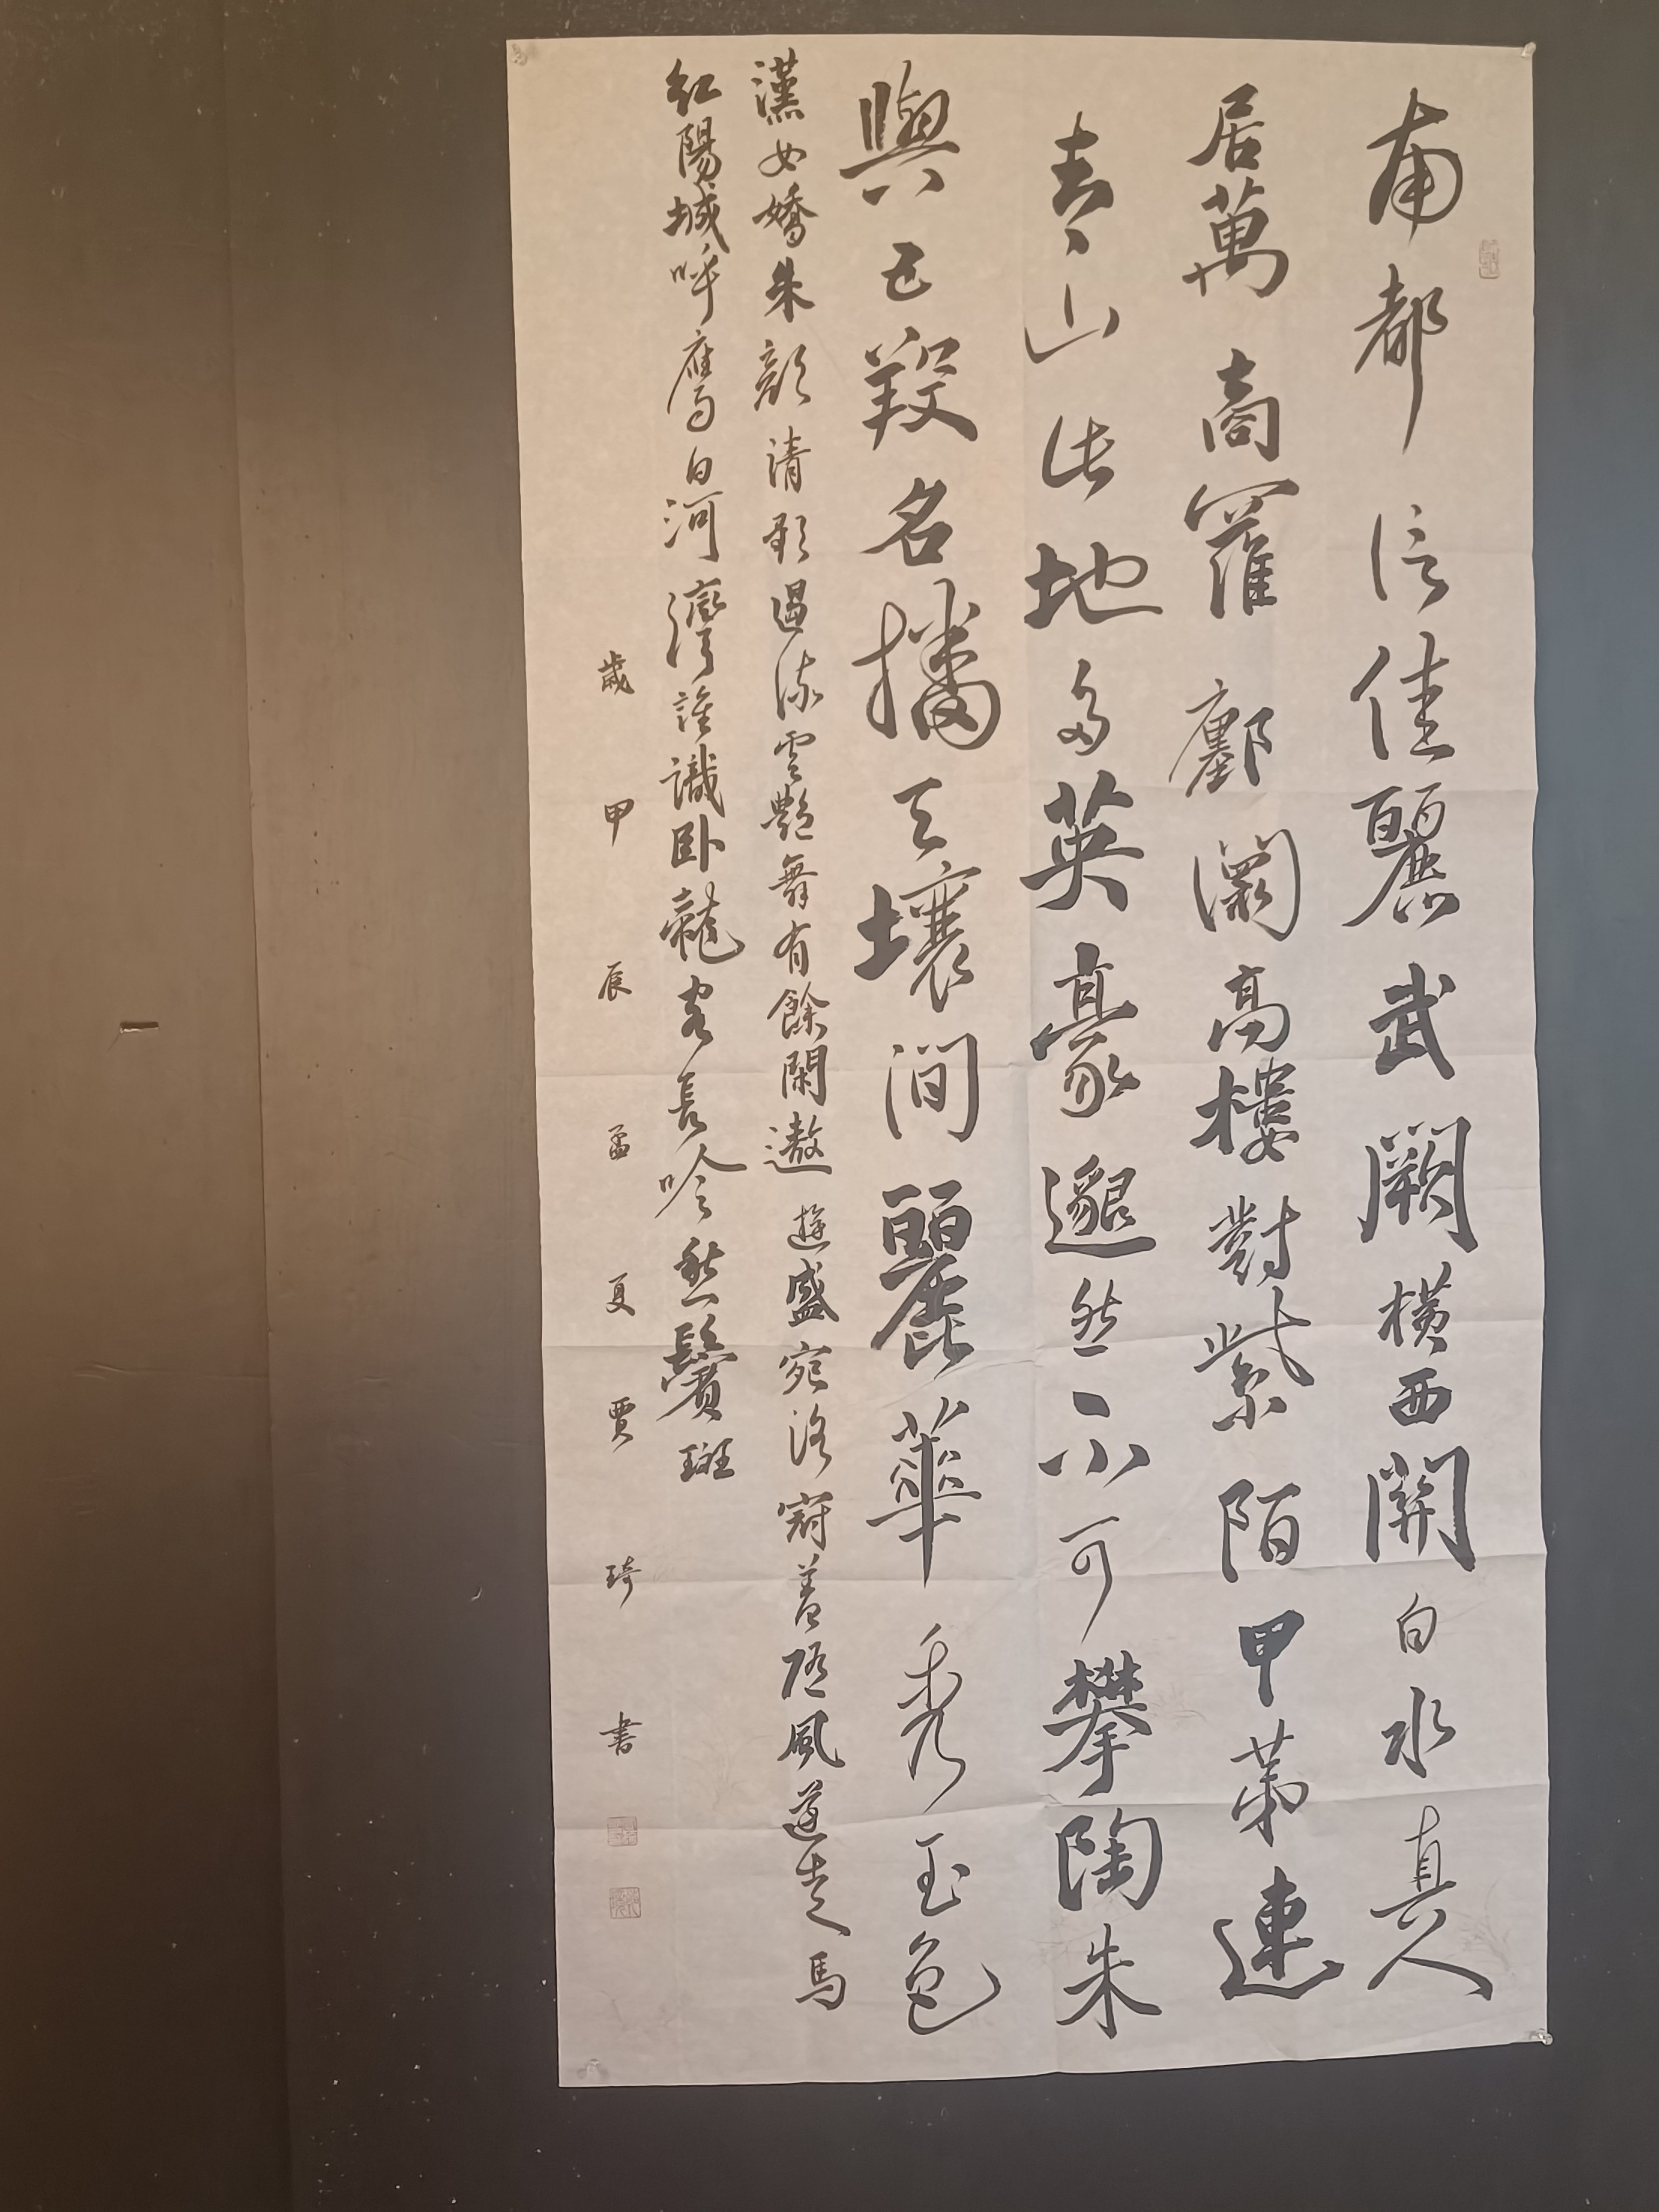 南都信佳麗武闕橫西關白水真人
居萬商羅鄽闤高樓對紫陌甲第連
青山此地多英豪邈然不可攀陶朱
與五羖名播天壤間麗華秀玉色
漢女嬌朱顏清歌遏流雲艷舞有餘閑遨遊盛宛洛冠蓋随風還走馬
紅陽城呼鷹白河灣誰識卧龍客長吟愁鬢斑
歲甲辰孟夏賈琦書